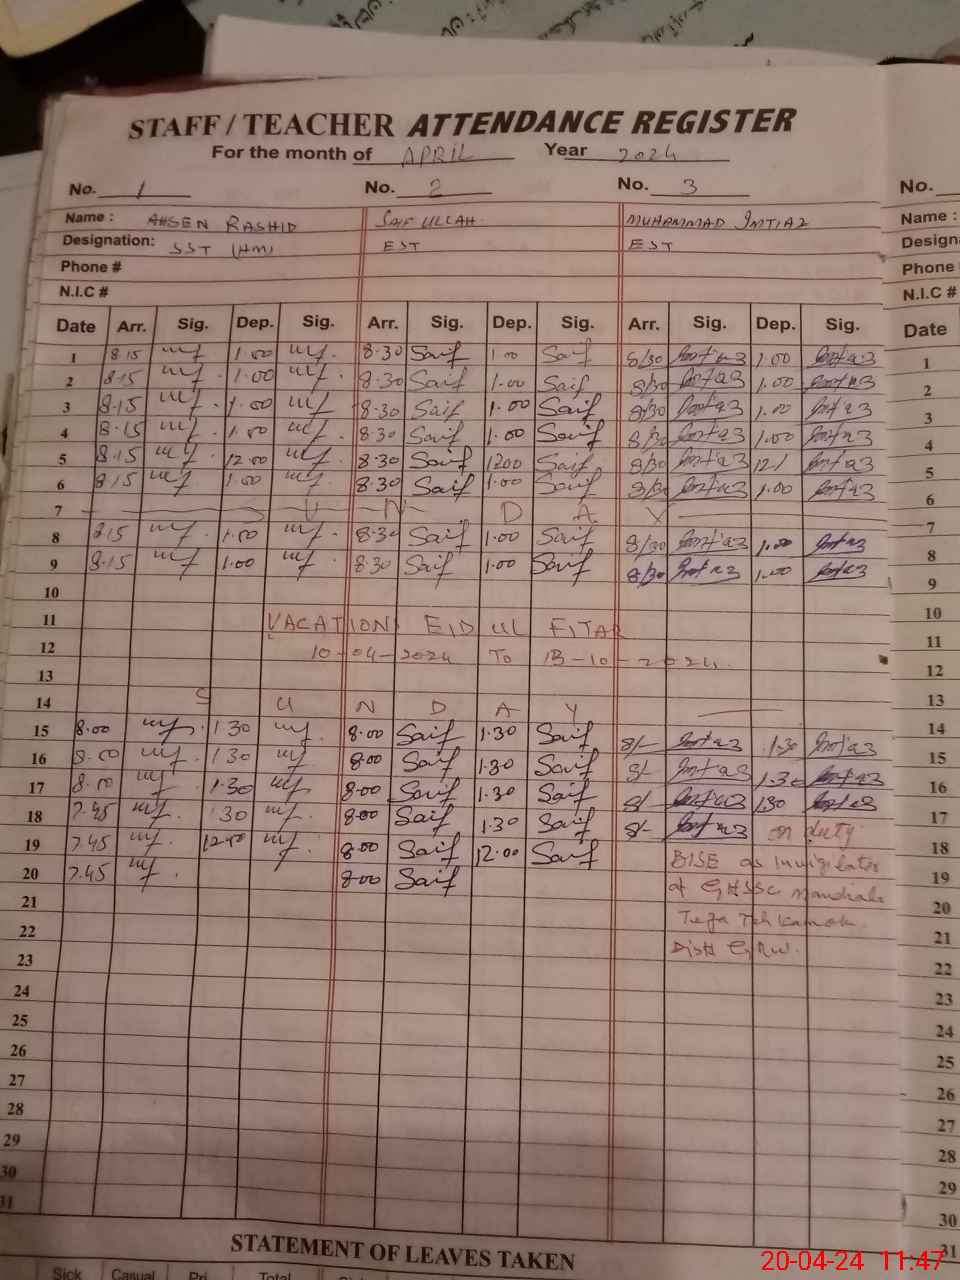 STAFF / TEACHER ATTENDANCE REGISTER
For the month of APRIL Year 2024
No. 1 No. 2 No. 3 No.
Name : AHSEN RASHID SAIF ULLAH. MUHAMMAD IMTIAZ Name :
Designation: SST (HM) EST EST Design
Phone # Phone
N.I.C # N.I.C #
Date Arr. Sig. Dep. Sig. Arr. Sig. Dep. Sig. Arr. Sig. Dep. Sig. Date
1 8.15 1.00 8.30 Saif 1.00 Saif 8/30 Imtiaz 1.00 Imtiaz 1
2 8.15 1.00 8.30 Saif 1.00 Saif 8/30 Imtiaz 1.00 Imtiaz 2
3 8.15 1.00 8.30 Saif 1.00 Saif 8/30 Imtiaz 1.00 Imtiaz 3
4 8.15 1.00 8.30 Saif 1.00 Saif 8/30 Imtiaz 1.00 Imtiaz 4
5 8.15 12.00 8.30 Saif 1200 Saif 8/30 Imtiaz 12/ Imtiaz 5
6 8.15 1.00 8.30 Saif 1.00 Saif 8/30 Imtiaz 1.00 Imtiaz 6
7 S U N D A Y 7
8 8.15 1.00 8.30 Saif 1.00 Saif 8/30 Imtiaz 1.00 Imtiaz 8
9 8.15 1.00 8.30 Saif 1.00 Saif 8/30 Imtiaz 1.00 Imtiaz 9
10 10
11 VACATION EID UL FITAR 11
12 10-04-2024 TO 13-10-2024. 12
13 13
14 S U N D A Y 14
15 8.00 1.30 8.00 Saif 1.30 Saif 8/- Imtiaz 1.30 Imtiaz 15
16 8.00 1.30 8.00 Saif 1.30 Saif 8/- Imtiaz 1.30 Imtiaz 16
17 8.00 1.30 8.00 Saif 1.30 Saif 8/- Imtiaz 130 Imtiaz 17
18 7.45 1.30 8.00 Saif 1.30 Saif 8/- Imtiaz on duty 18
19 7.45 12.00 8.00 Saif 12.00 Saif BISE as invigilator 19
20 7.45 8.00 Saif at GHSSC Mandiala 20
21 Tega Teh Kamoke 21
22 Distt GRW. 22
23 23
24 24
25 25
26 26
27 27
28 28
29 29
30 30
31 31
STATEMENT OF LEAVES TAKEN
Sick Casual Pri. Total
20-04-24 11:47